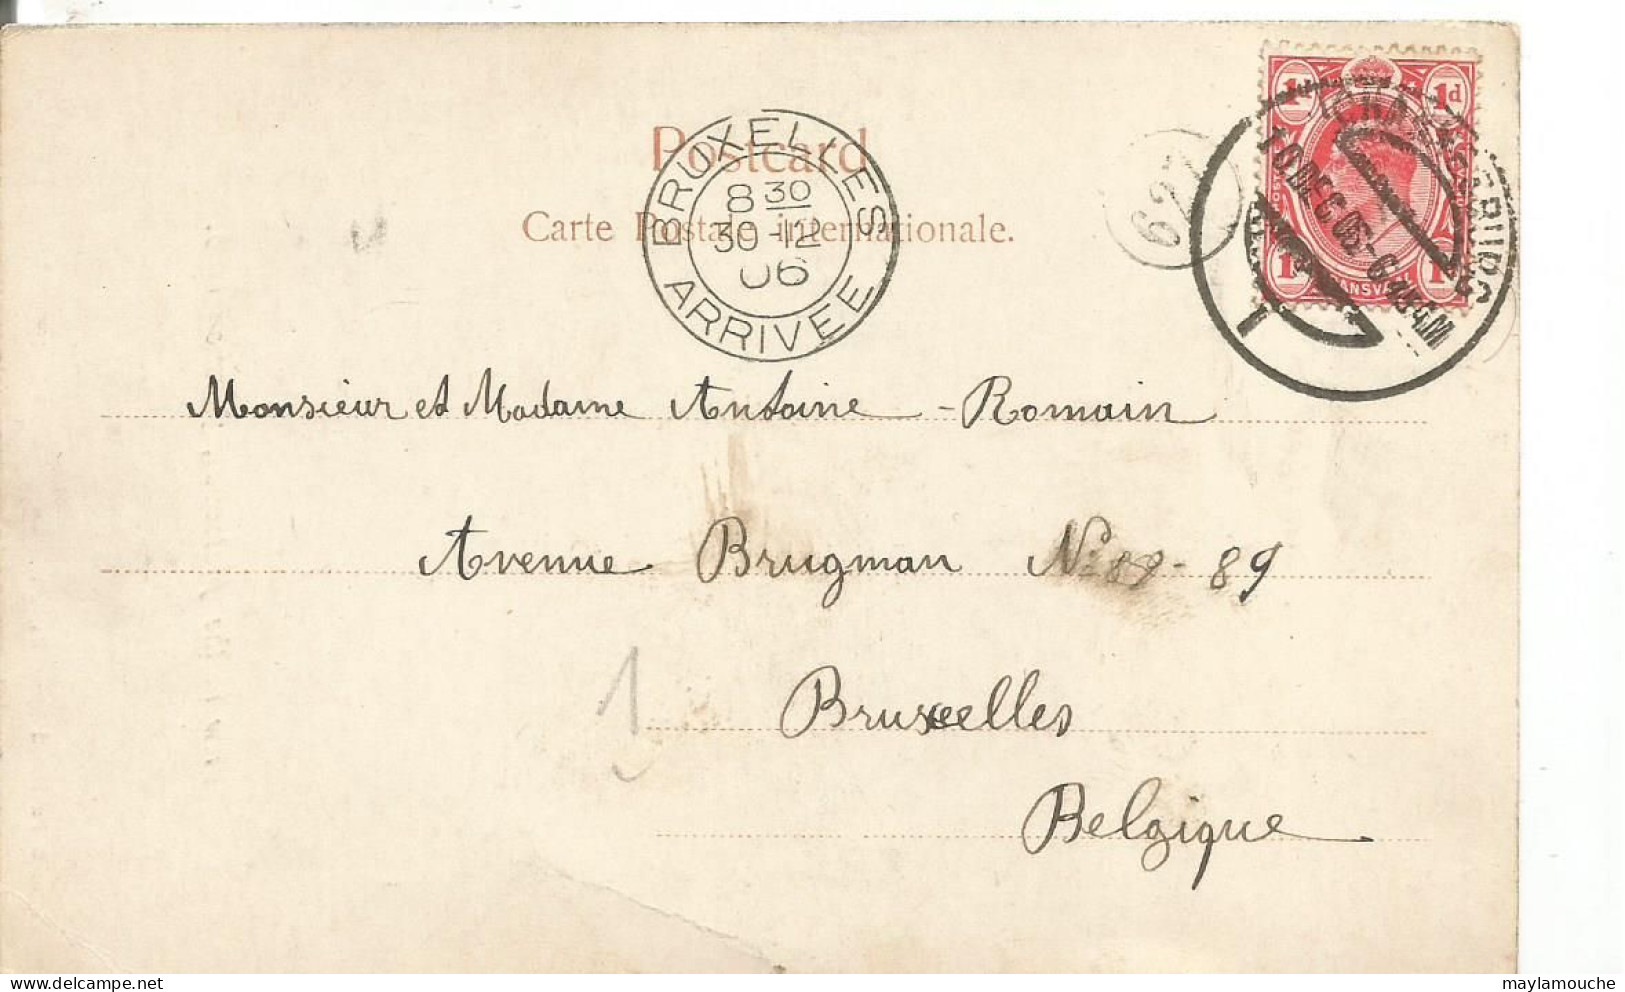 Postcard
Carte Postale internationale.
BRUXELLES
8 30
30-12
06
ARRIVEE
627
1d 1d
TRANSVAAL
JOHANNESBURG
10 DEC 06
1
Monsieur et Madame Antoine - Romain
Avenue Brugman No 89 - 89
Bruxelles
Belgique
1
www.delcampe.net
maylamouche